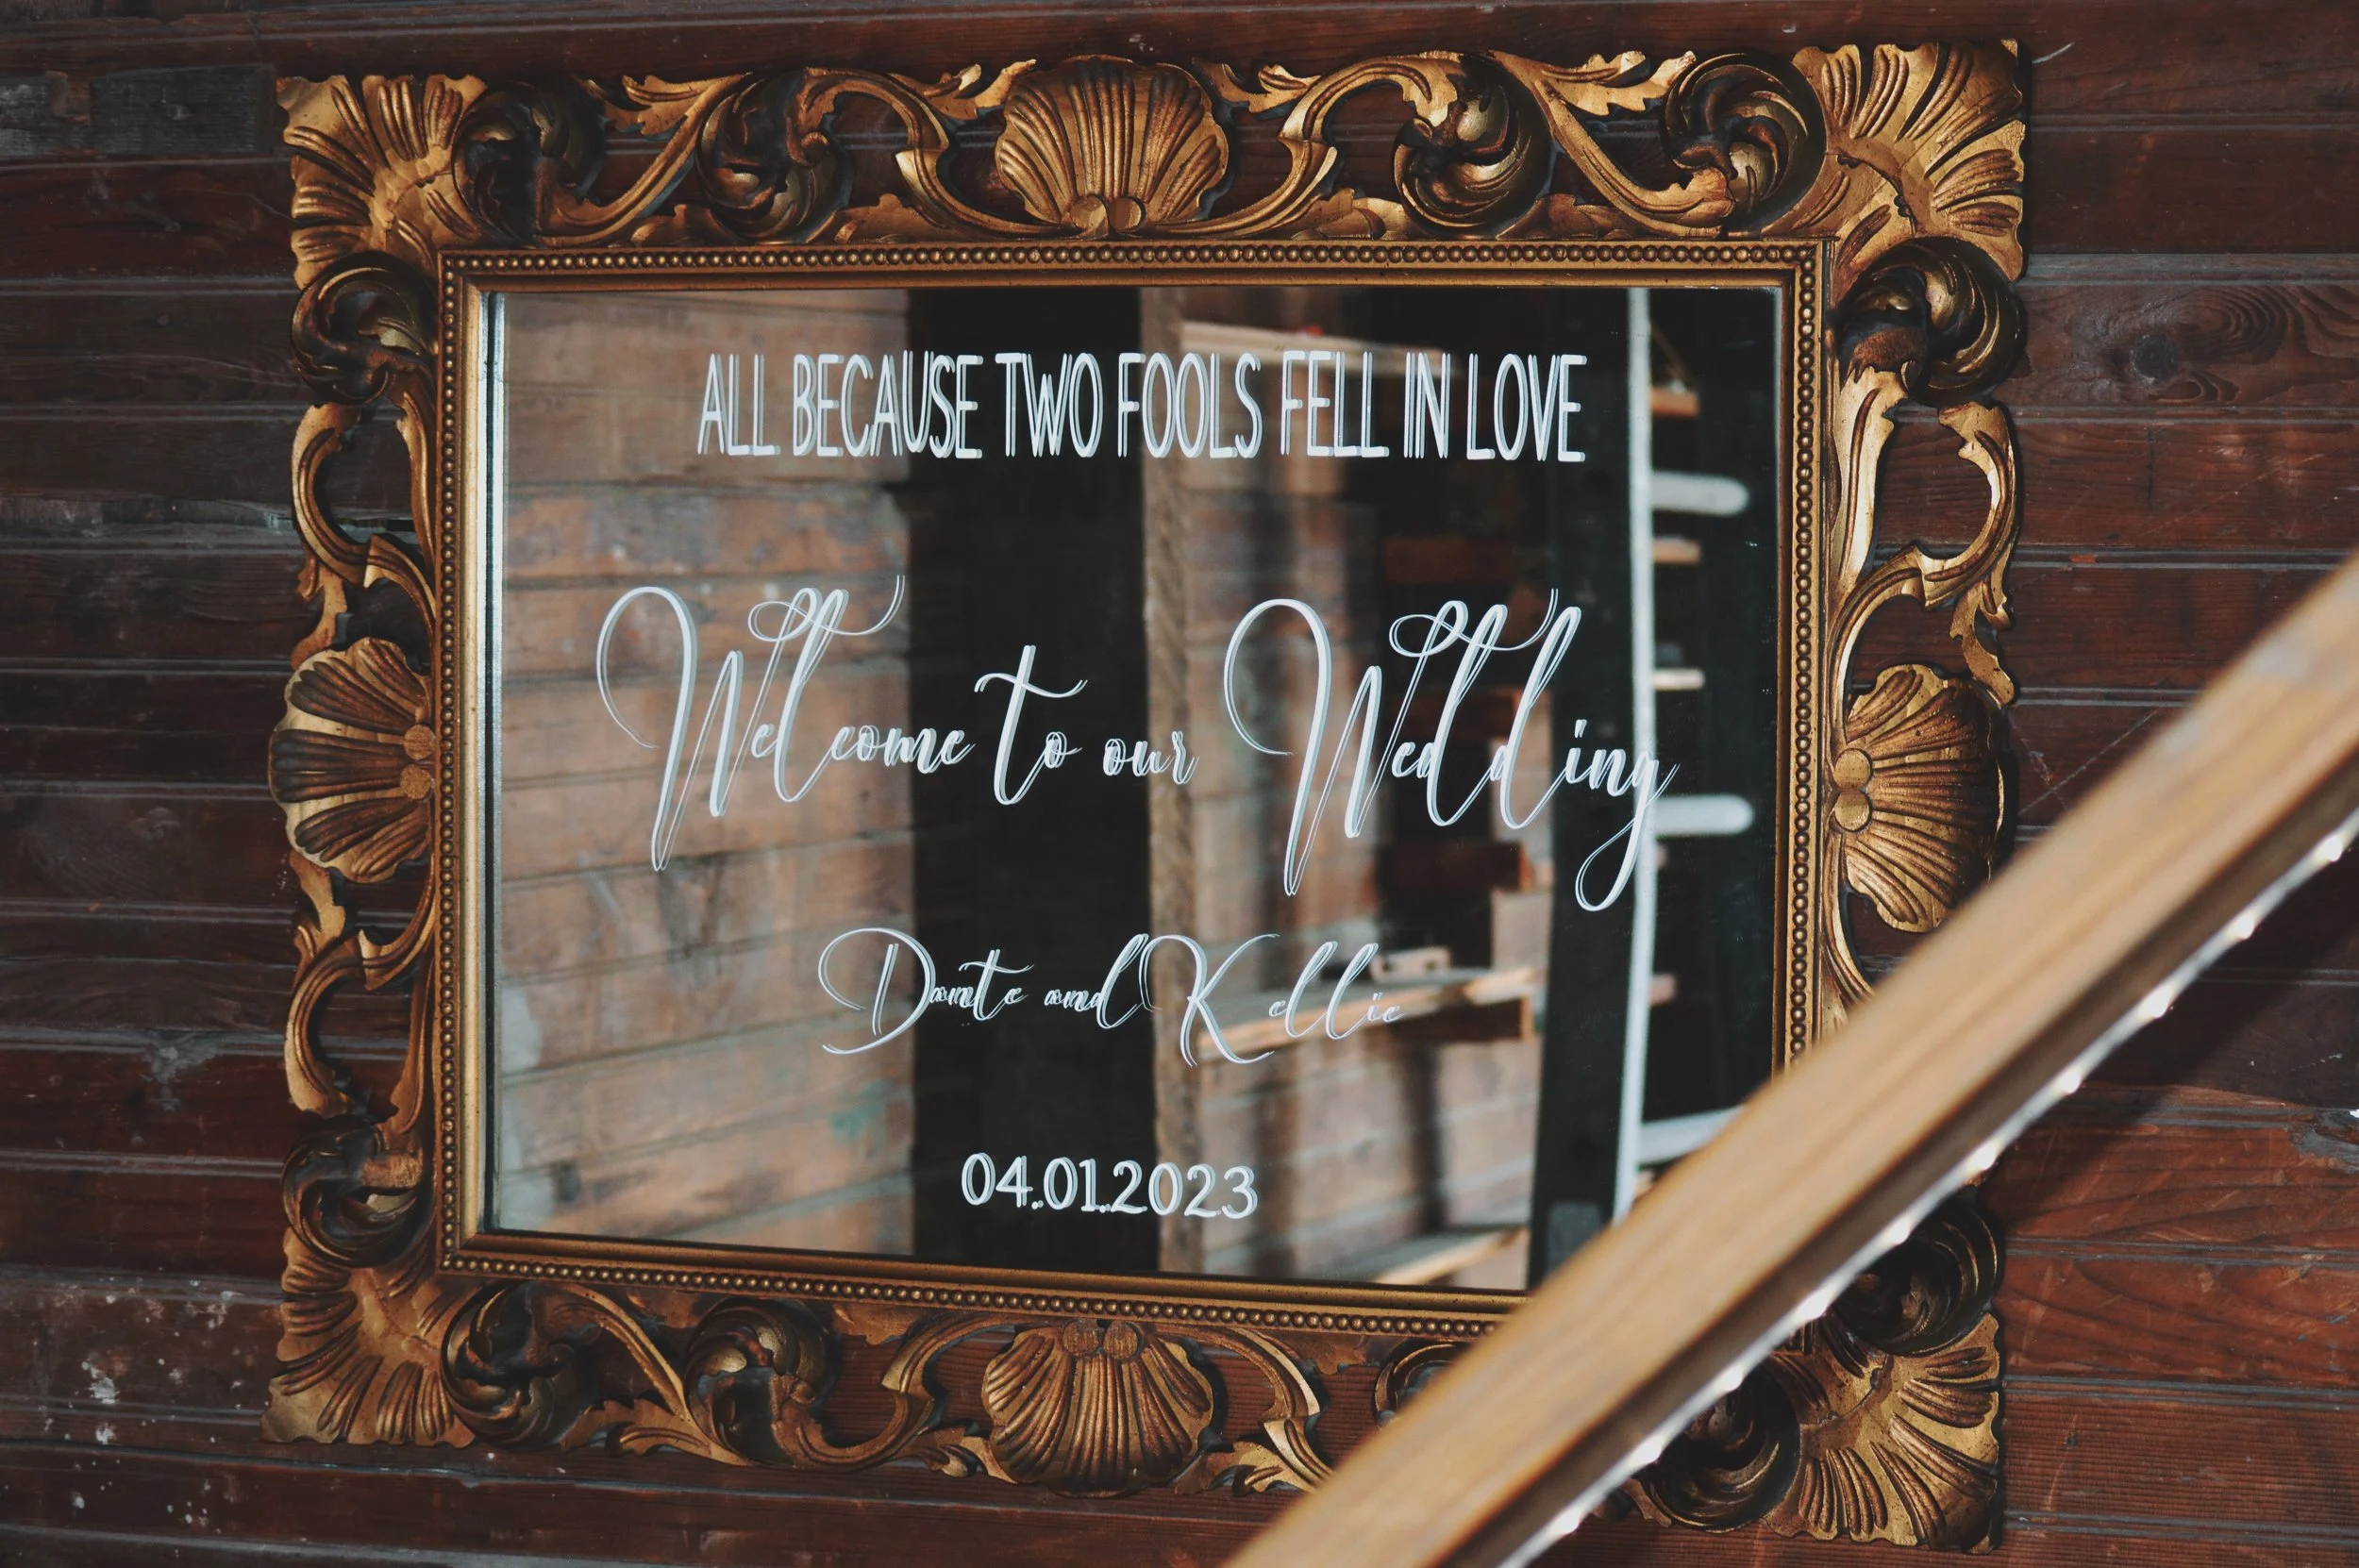 ALL BECAUSE TWO FOOLS FELL IN LOVE
Welcome to our Wedding
Dante and Kellie
04.01.2023